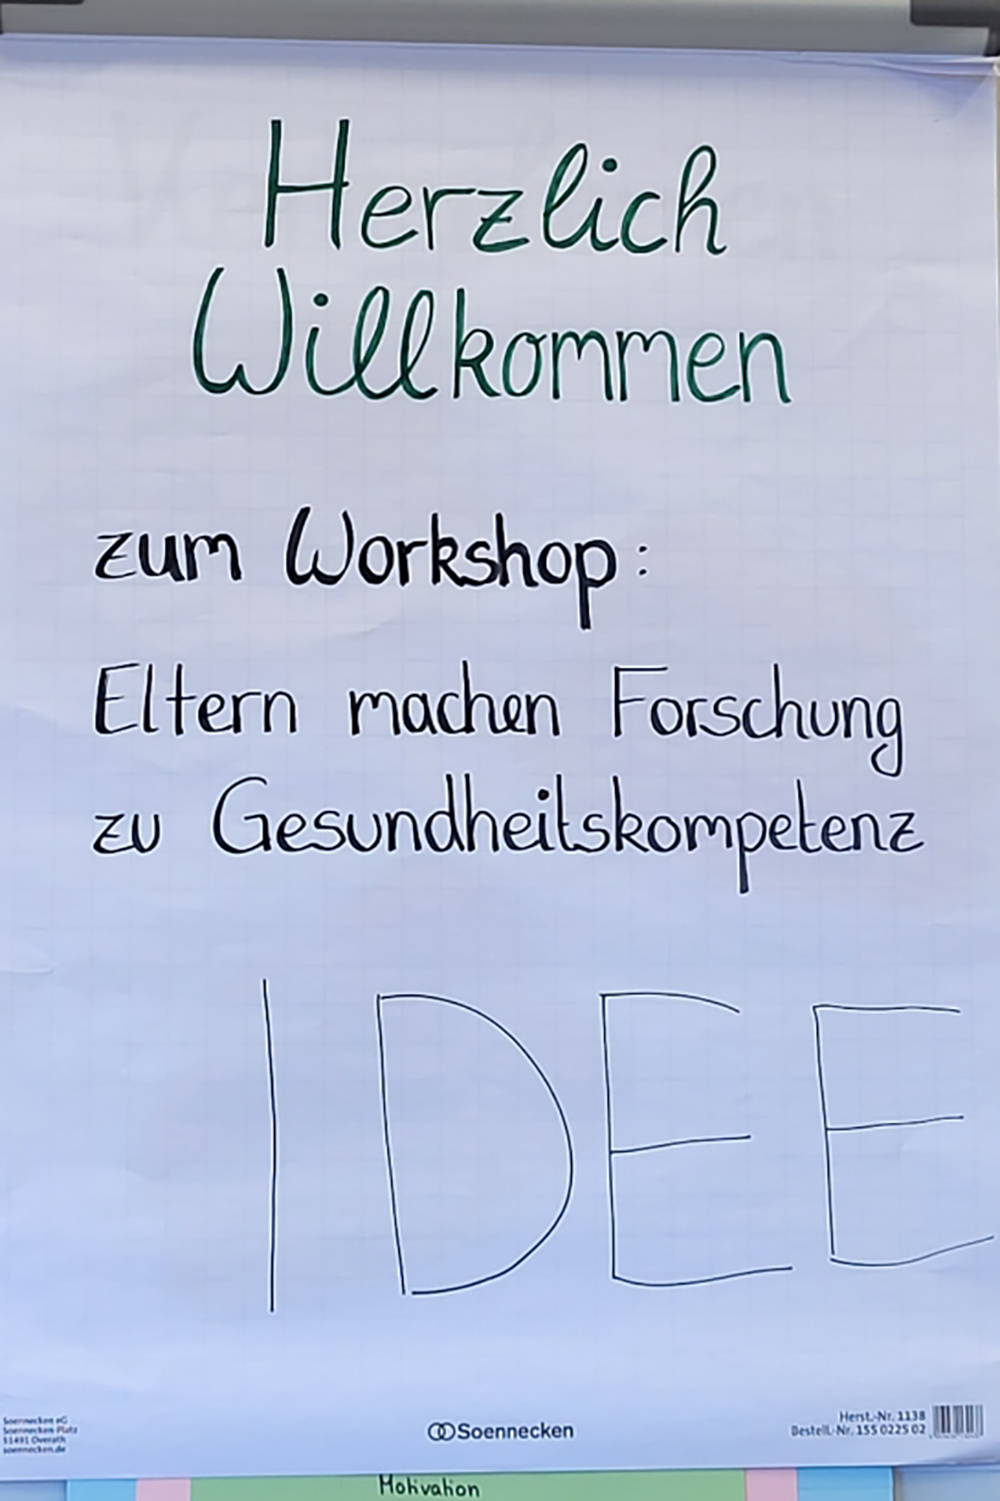 Herzlich
Willkommen
zum Workshop:
Eltern machen Forschung
zu Gesundheitskompetenz
IDEE
Soennecken eG
Soennecken-Platz
51491 Overath
soennecken.de
Soennecken
Herst.-Nr. 1138
Bestell.-Nr. 155 0225 02
Motivation